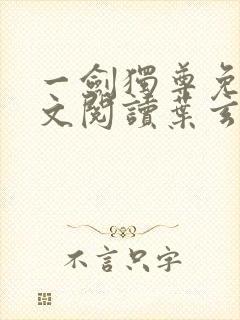 一劍獨尊免
文閱讀葉玄
不言只字